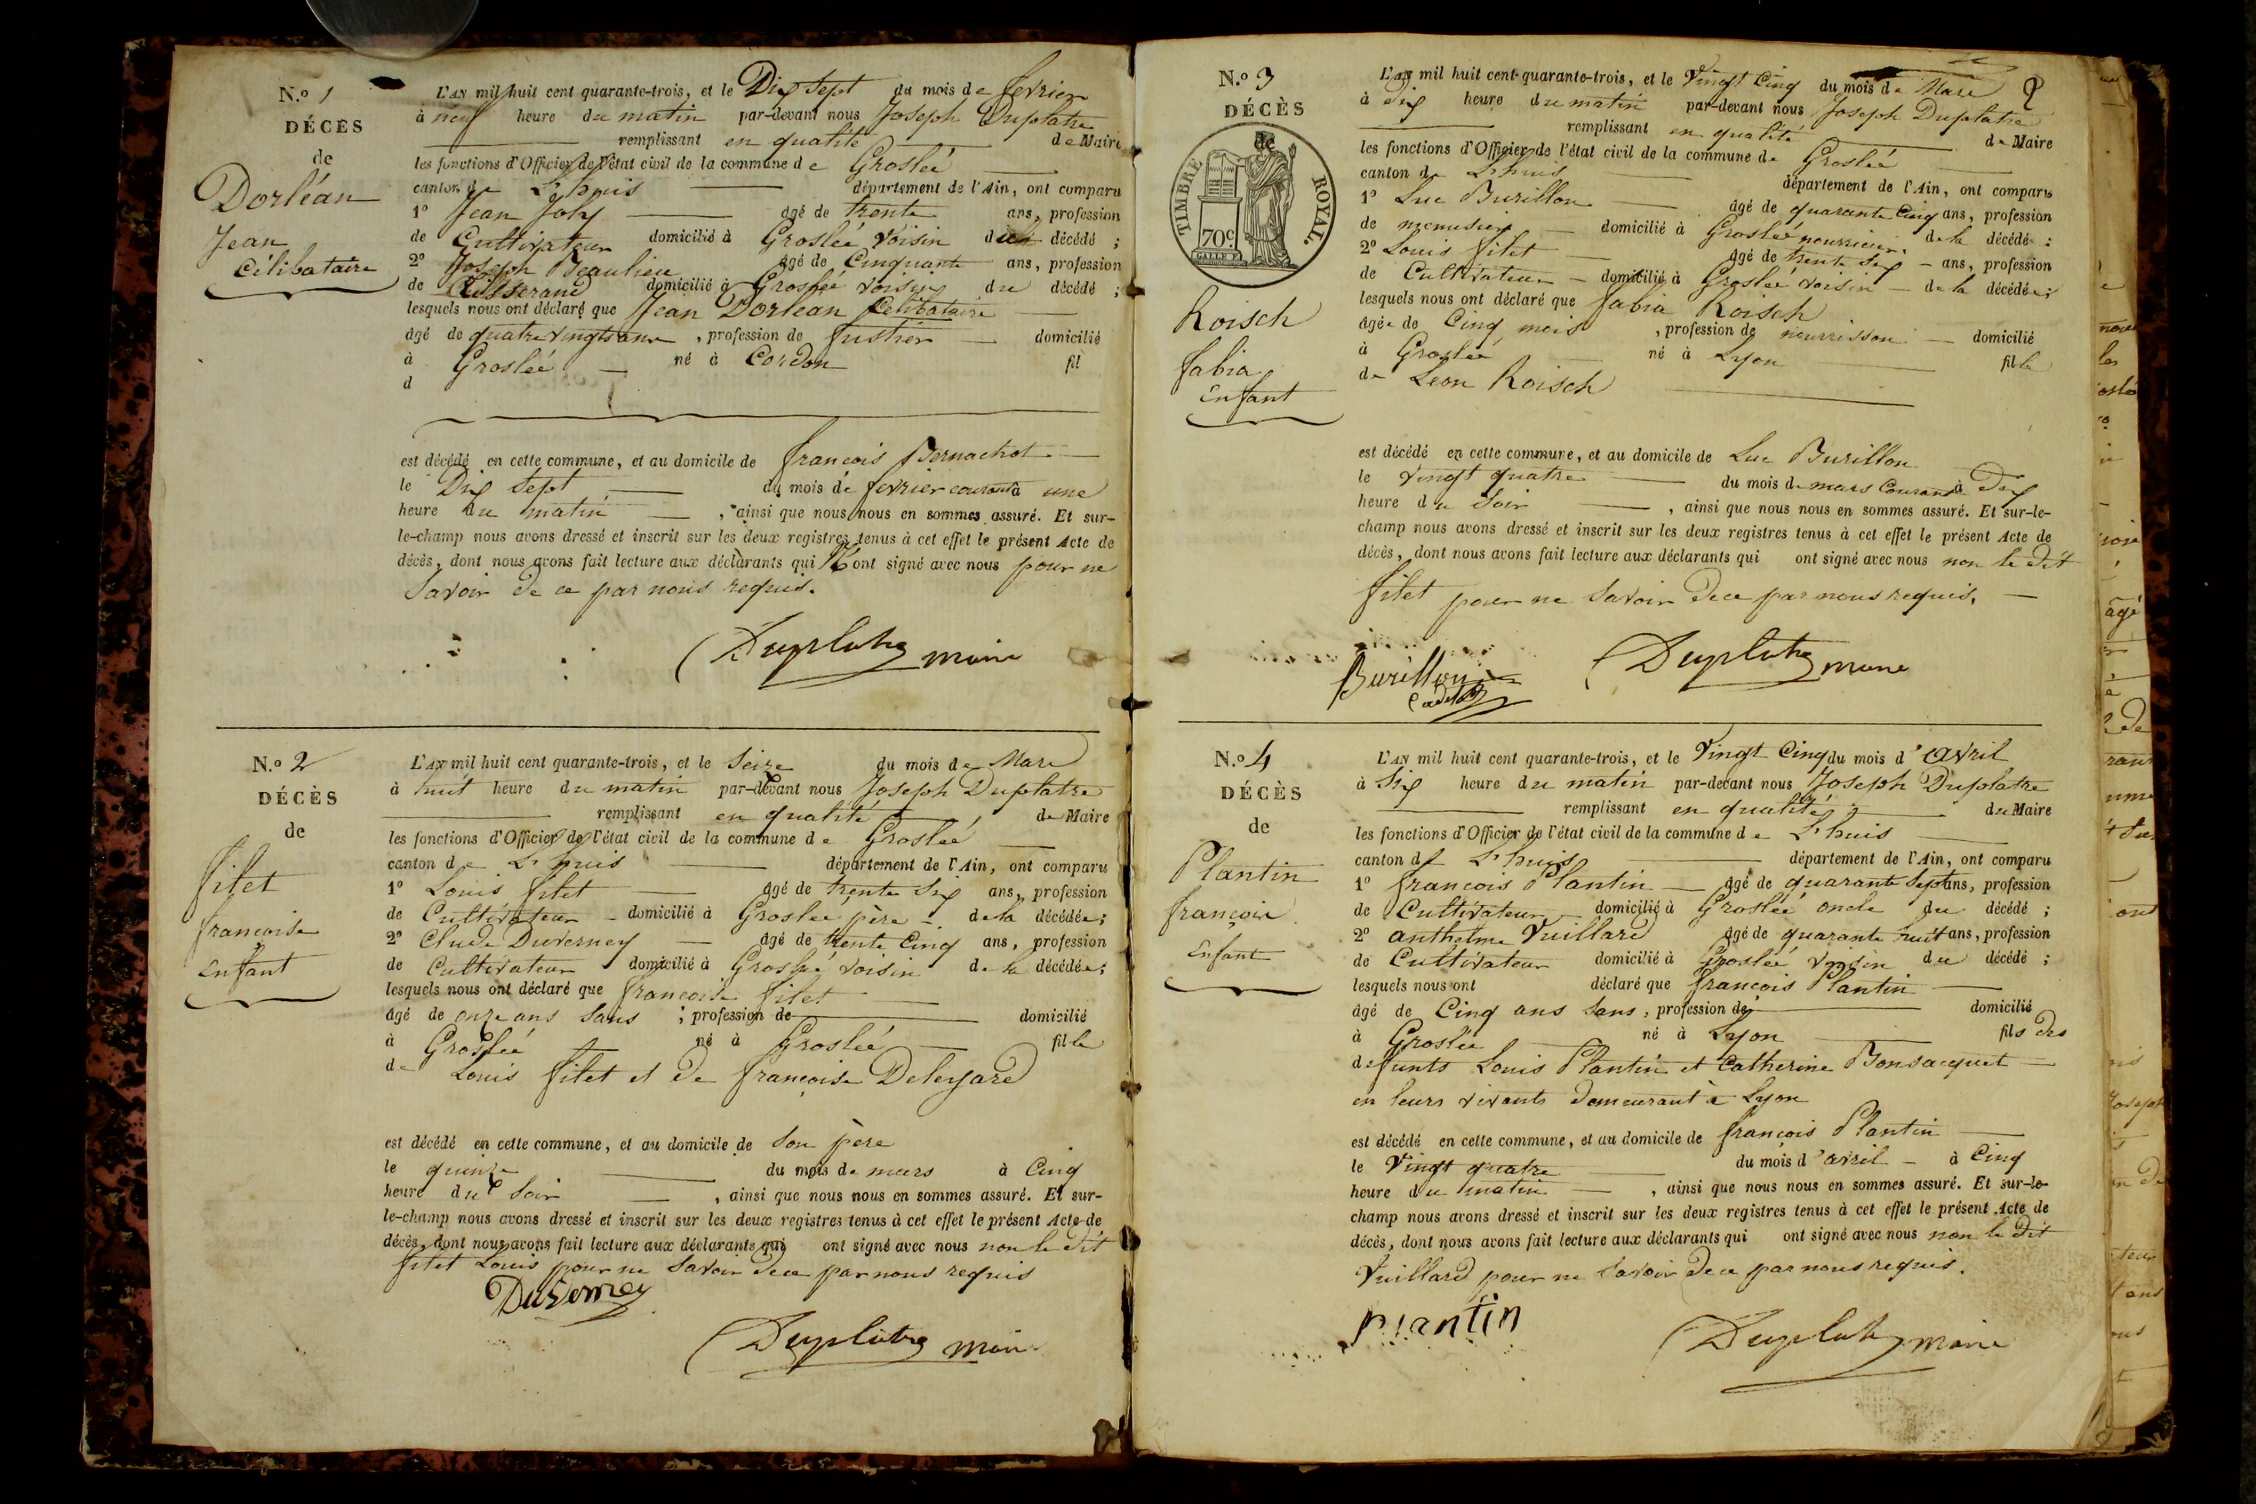 N.º 1
DÉCÈS
de
Dorléan
Jean
Célibataire
L'AN mil huit cent quarante-trois, et le Dix sept du mois de fevrier
à neuf heure du matin par-devant nous Joseph Duplatre
remplissant en qualité de Maire
les fonctions d'Officier de l'état civil de la commune de Groslée
canton de L'huis département de l'Ain, ont comparu
1º Jean Joly âgé de trente ans, profession
de Cultivateur domicilié à Groslée voisin du décédé ;
2º Joseph Beaulieu âgé de Cinquante ans, profession
de Tisserand domicilié à Groslée voisin du décédé ;
lesquels nous ont déclaré que Jean Dorlean Celibataire
âgé de quatre vingts ans , profession de domicilié
à Groslée né à Cordon fil
d
est décédé en cette commune, et au domicile de francois Bernachot
le Dix sept du mois de fevrier courant à une
heure du matin , ainsi que nous nous en sommes assuré. Et sur-
le-champ nous avons dressé et inscrit sur les deux registres tenus à cet effet le présent Acte de
décès, dont nous avons fait lecture aux déclarants qui N'ont signé avec nous pour ne
Savoir de ce par nous requis.
Duplatre maire
N.º 2
DÉCÈS
de
filet
francoise
Enfant
L'AN mil huit cent quarante-trois, et le Seize du mois de Mars
à huit heure du matin par-devant nous Joseph Duplatre
remplissant en qualité de Maire
les fonctions d'Officier de l'état civil de la commune de Groslée
canton de L'huis département de l'Ain, ont comparu
1º Louis filet âgé de trente Six ans, profession
de Cultivateur domicilié à Groslee père de la décédée ;
2º Claude Duverney âgé de trente Cinq ans, profession
de Cultivateur domicilié à Groslée voisin de la décédée ;
lesquels nous ont déclaré que francoise filet
âgé de onze ans Sans ; profession de domicilié
à Groslée né à Groslée fille
de Louis filet et de françoise Deleyard
est décédé en cette commune, et au domicile de Son père
le quinze du mois de mars à Cinq
heure du Soir , ainsi que nous nous en sommes assuré. Et sur-
le-champ nous avons dressé et inscrit sur les deux registres tenus à cet effet le présent Acte de
décès, dont nous avons fait lecture aux déclarants qui ont signé avec nous non le dit
filet Louis pour ne Savoir de ce par nous requis
Duverney
Duplatre maire
N.º 3
DÉCÈS
de
TIMBRE ROYAL.
70c
Roisch
fabia
Enfant
L'AN mil huit cent quarante-trois, et le Vingt Cinq du mois de Mars
à Dix heure du matin par-devant nous Joseph Duplatre
remplissant en qualité de Maire
les fonctions d'Officier de l'état civil de la commune de Groslée
canton de L'huis département de l'Ain, ont comparu
1º Luc Burillon âgé de quarante Cinq ans, profession
de menusier domicilié à Groslée nourricier de la décédé ;
2º Louis filet âgé de trente Six ans, profession
de Cultivateur domicilié à Groslée voisin de la décédée ;
lesquels nous ont déclaré que fabia Roisch
âgée de Cinq mois , profession de nourrisson domicilié
à Groslée né à Lyon fille
de Leon Roisch
est décédé en cette commune, et au domicile de Luc Burillon
le vingt quatre du mois de mars Courant à Dix
heure du Soir , ainsi que nous nous en sommes assuré. Et sur-le-
champ nous avons dressé et inscrit sur les deux registres tenus à cet effet le présent Acte de
décès, dont nous avons fait lecture aux déclarants qui ont signé avec nous non le dit
filet pour ne Savoir de ce par nous requis.
Burillon
Duplatre maire
N.º 4
DÉCÈS
de
Plantin
françois
Enfant
L'AN mil huit cent quarante-trois, et le Vingt Cinq du mois d'avril
à Six heure du matin par-devant nous Joseph Duplatre
remplissant en qualité de Maire
les fonctions d'Officier de l'état civil de la commune de L'huis
canton de L'huis département de l'Ain, ont comparu
1º francois Plantin âgé de quarante Sept ans, profession
de Cultivateur domicilié à Groslée oncle du décédé ;
2º anthelme Vuillard âgé de quarante huit ans, profession
de Cultivateur domicilié à Groslée voisin du décédé ;
lesquels nous ont déclaré que francois Plantin
âgé de Cinq ans Sans , profession de domicilié
à Groslée né à Lyon fils des
défunts Louis Plantin et Catherine Bonsacquet
en leurs vivants Demeurant à Lyon
est décédé en cette commune, et au domicile de francois Plantin
le Vingt quatre du mois d'avril à Cinq
heure du matin , ainsi que nous nous en sommes assuré. Et sur-le-
champ nous avons dressé et inscrit sur les deux registres tenus à cet effet le présent Acte de
décès, dont nous avons fait lecture aux déclarants qui ont signé avec nous non le dit
Vuillard pour ne Savoir de ce par nous requis.
Plantin
Duplatre maire